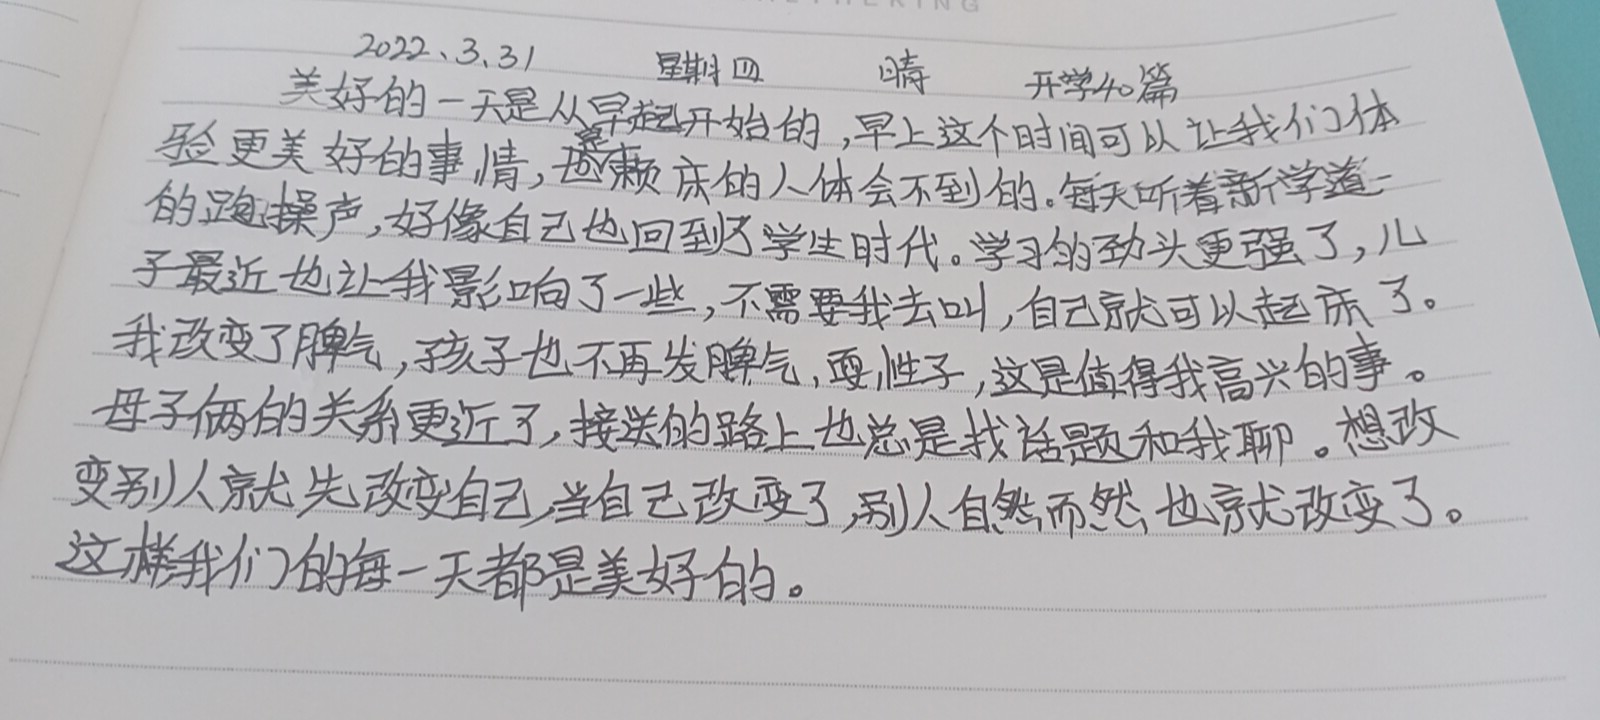 2022、3、31 星期四 晴 开学40篇
美好的一天是从早起开始的,早上这个时间可以让我们体
验更美好的事情,是赖床的人体会不到的。每天听着新学道一
的跑操声,好像自己也回到了学生时代。学习的劲头更强了,儿
子最近也让我影响了一些,不需要我去叫,自己就可以起床了。
我改变了脾气,孩子也不再发脾气,耍性子,这是值得我高兴的事。
母子俩的关系更近了,接送的路上也总是找话题和我聊。想改
变别人就先改变自己,当自己改变了,别人自然而然也就改变了。
这样我们的每一天都是美好的。